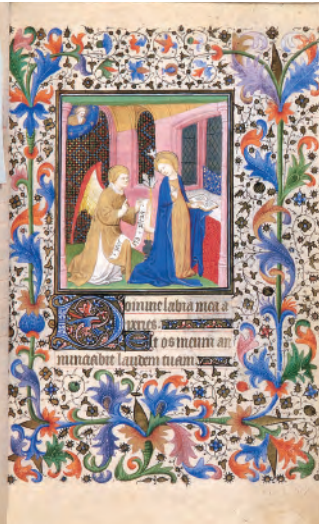 Domine labia mea a
peries.
Et os meum an
nunciabit laudem tuam.